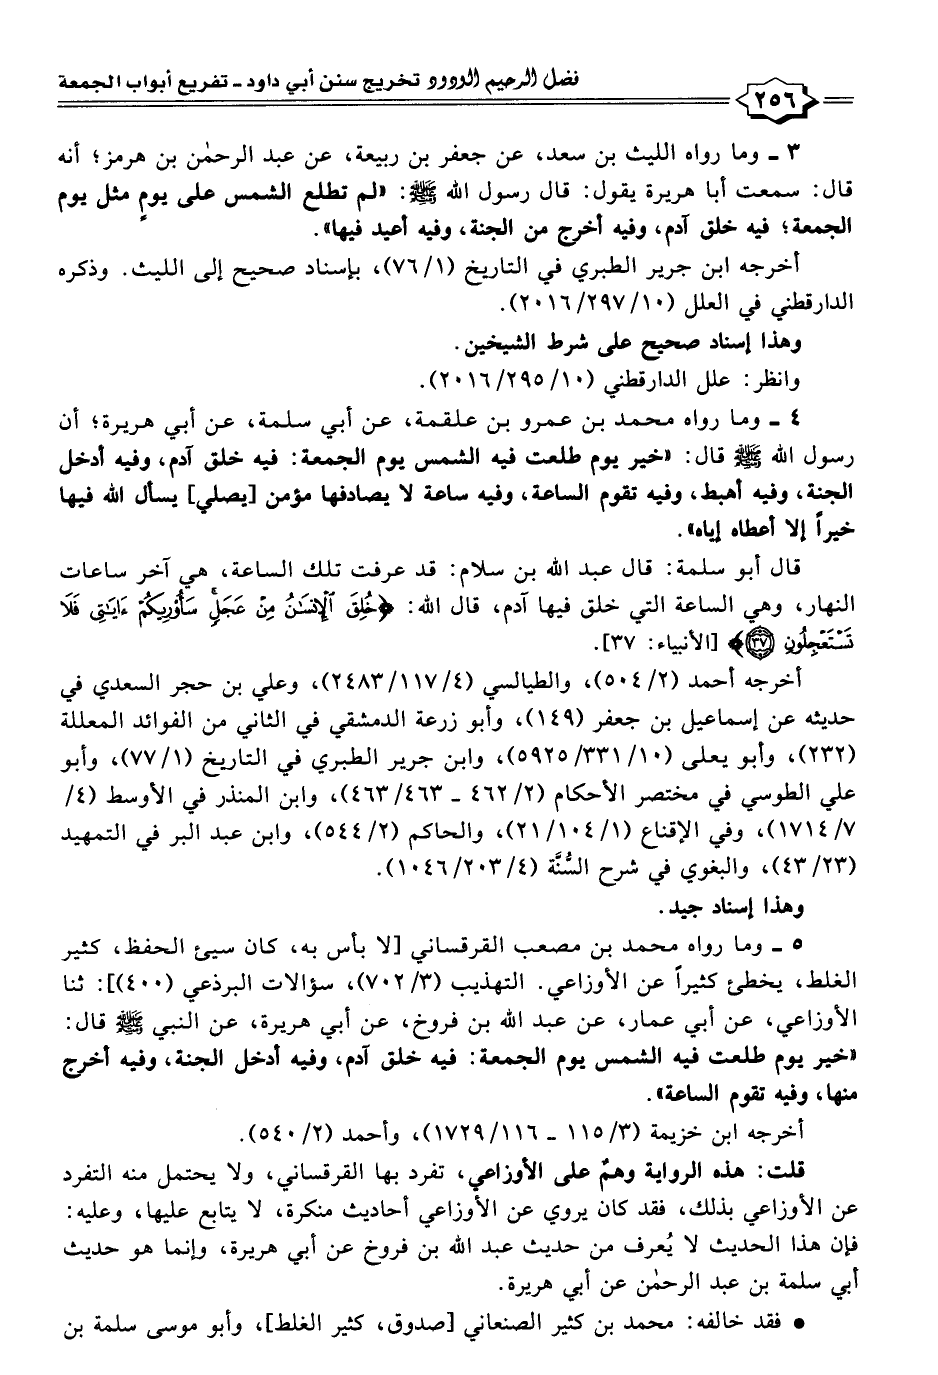 فضل الرحيم الودود تخريج سنن أبي داود ـ تفريع أبواب الجمعة
٢٥٦
٣ ـ وما رواه الليث بن سعد، عن جعفر بن ربيعة، عن عبد الرحمٰن بن هرمز؛ أنه
قال: سمعت أبا هريرة يقول: قال رسول الله ﷺ: «لم تطلع الشمس على يومٍ مثل يوم
الجمعة؛ فيه خلق آدم، وفيه أخرج من الجنة، وفيه أعيد فيها».
أخرجه ابن جرير الطبري في التاريخ (٧٦/١)، بإسناد صحيح إلى الليث. وذكره
الدارقطني في العلل (٢٠١٦/٢٩٧/١٠).
وهذا إسناد صحيح على شرط الشيخين.
وانظر: علل الدارقطني (٢٠١٦/٢٩٥/١٠).
٤ ـ وما رواه محمد بن عمرو بن علقمة، عن أبي سلمة، عن أبي هريرة؛ أن
رسول الله ﷺ قال: «خير يوم طلعت فيه الشمس يوم الجمعة: فيه خلق آدم، وفيه أدخل
الجنة، وفيه أهبط، وفيه تقوم الساعة، وفيه ساعة لا يصادفها مؤمن [يصلي] يسأل الله فيها
خيراً إلا أعطاه إياه».
قال أبو سلمة: قال عبد الله بن سلام: قد عرفت تلك الساعة، هي آخر ساعات
النهار، وهي الساعة التي خلق فيها آدم، قال الله: ﴿خُلِقَ ٱلْإِنسَٰنُ مِنْ عَجَلٍۚ سَأُو۟رِيكُمْ ءَايَٰتِى فَلَا
تَسْتَعْجِلُونِ ﴿٣٧﴾﴾ [الأنبياء: ٣٧].
أخرجه أحمد (٥٠٤/٢)، والطيالسي (٢٤٨٣/١١٧/٤)، وعلي بن حجر السعدي في
حديثه عن إسماعيل بن جعفر (١٤٩)، وأبو زرعة الدمشقي في الثاني من الفوائد المعللة
(٢٣٢)، وأبو يعلى (٥٩٢٥/٣٣١/١٠)، وابن جرير الطبري في التاريخ (٧٧/١)، وأبو
علي الطوسي في مختصر الأحكام (٤٦٢/٢ ـ ٤٦٣/٤٦٣)، وابن المنذر في الأوسط (٤/
١٧١٤/٧)، وفي الإقناع (٢١/١٠٤/١)، والحاكم (٥٤٤/٢)، وابن عبد البر في التمهيد
(٤٣/٢٣)، والبغوي في شرح السُّنَّة (١٠٤٦/٢٠٣/٤).
وهذا إسناد جيد.
٥ ـ وما رواه محمد بن مصعب القرقساني [لا بأس به، كان سيئ الحفظ، كثير
الغلط، يخطئ كثيراً عن الأوزاعي. التهذيب (٧٠٢/٣)، سؤالات البرذعي (٤٠٠)]: ثنا
الأوزاعي، عن أبي عمار، عن عبد الله بن فروخ، عن أبي هريرة، عن النبي ﷺ قال:
«خير يوم طلعت فيه الشمس يوم الجمعة: فيه خلق آدم، وفيه أدخل الجنة، وفيه أخرج
منها، وفيه تقوم الساعة».
أخرجه ابن خزيمة (١١٥/٣ ـ ١٧٢٩/١١٦)، وأحمد (٥٤٠/٢).
قلت: هذه الرواية وهمٌ على الأوزاعي، تفرد بها القرقساني، ولا يحتمل منه التفرد
عن الأوزاعي بذلك، فقد كان يروي عن الأوزاعي أحاديث منكرة، لا يتابع عليها، وعليه:
فإن هذا الحديث لا يُعرف من حديث عبد الله بن فروخ عن أبي هريرة، وإنما هو حديث
أبي سلمة بن عبد الرحمٰن عن أبي هريرة.
● فقد خالفه: محمد بن كثير الصنعاني [صدوق، كثير الغلط]، وأبو موسى سلمة بن